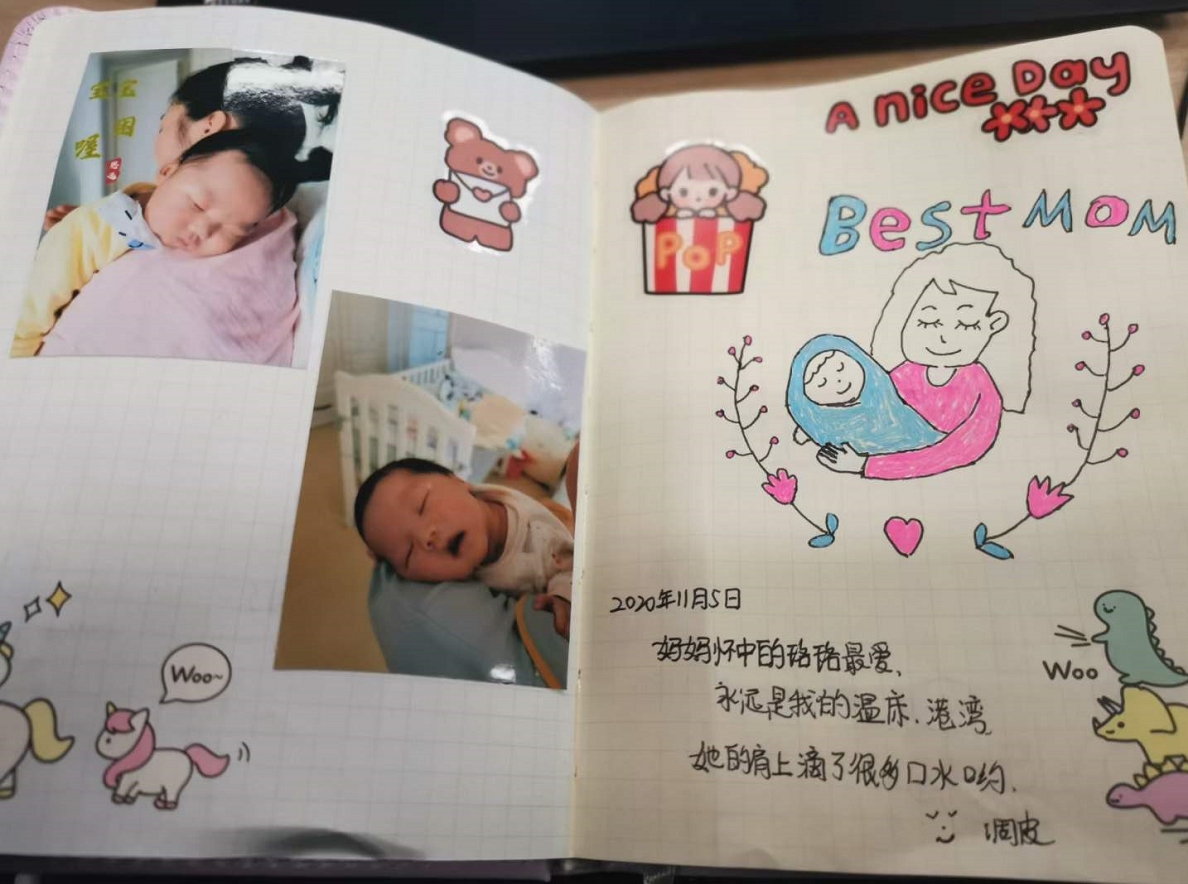 宝宝
困
喔
Woo~
A nice Day
POP
Best MOM
2020年11月5日
妈妈怀中的珞珞最爱、
永远是我的温床、港湾
她的肩上滴了很多口水哟、
调皮
Woo